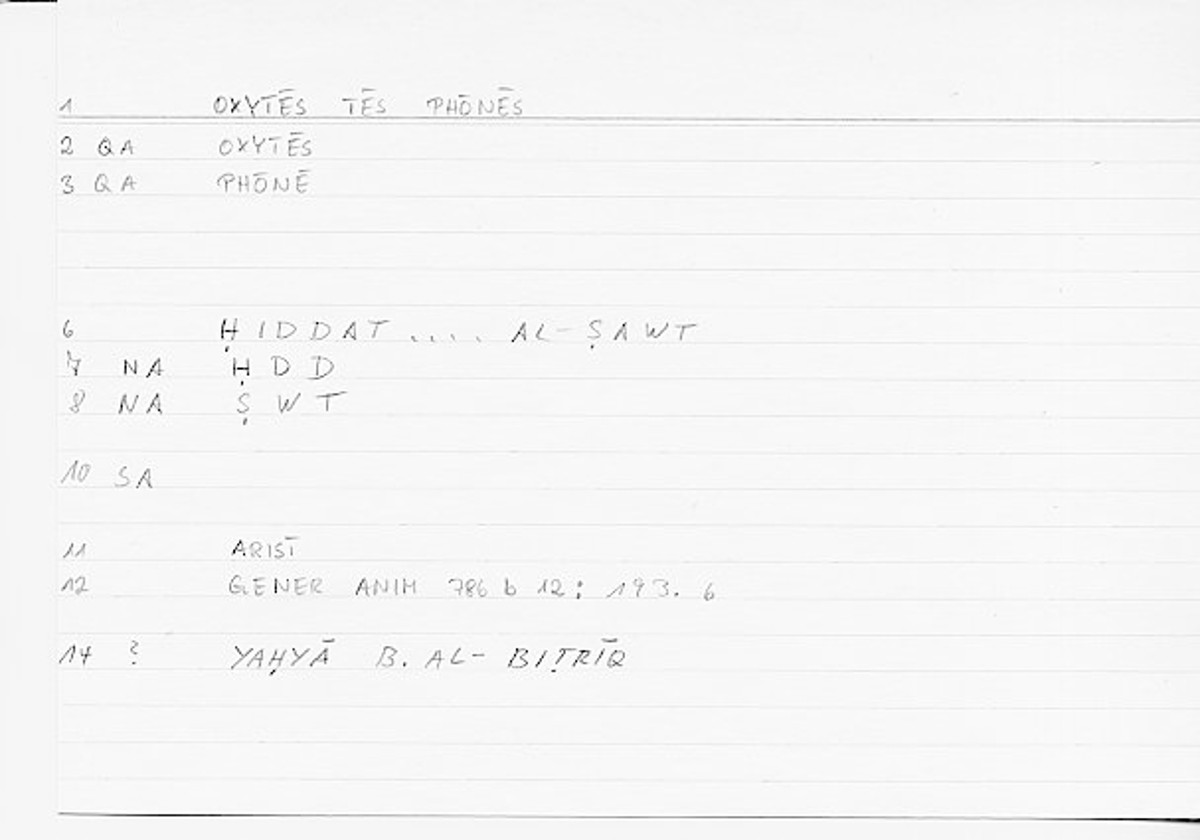 1 OXYTĒS TĒS PHŌNĒS
2 QA OXYTĒS
3 QA PHŌNĒ
6 ḤIDDAT .... AL-ṢAWT
7 NA ḤDD
8 NA ṢWT
10 SA
11 ARIST
12 GENER ANIM 786 b 12: 193. 6
14 ? YAḤYĀ B. AL-BIṬRĪQ